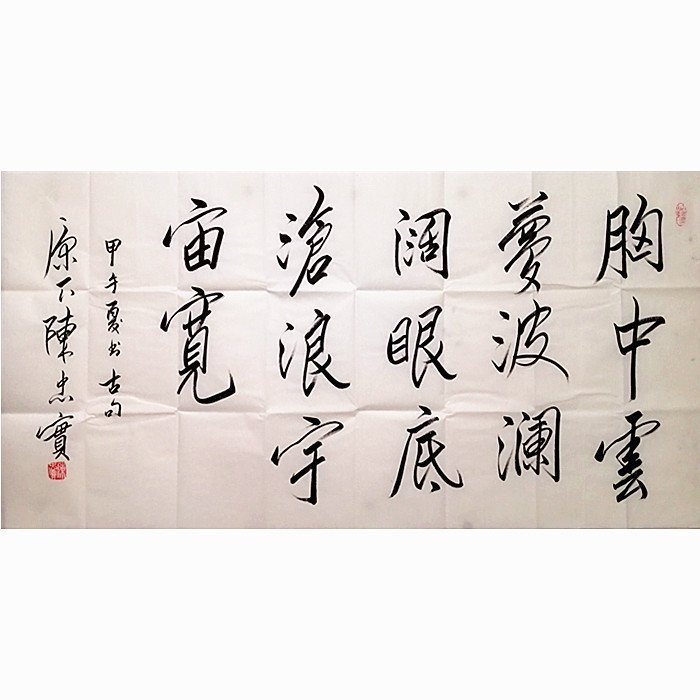 胸中雲
夢波澜
阔眼底
滄浪宇
宙寬
甲午夏书古句
原下陳忠實